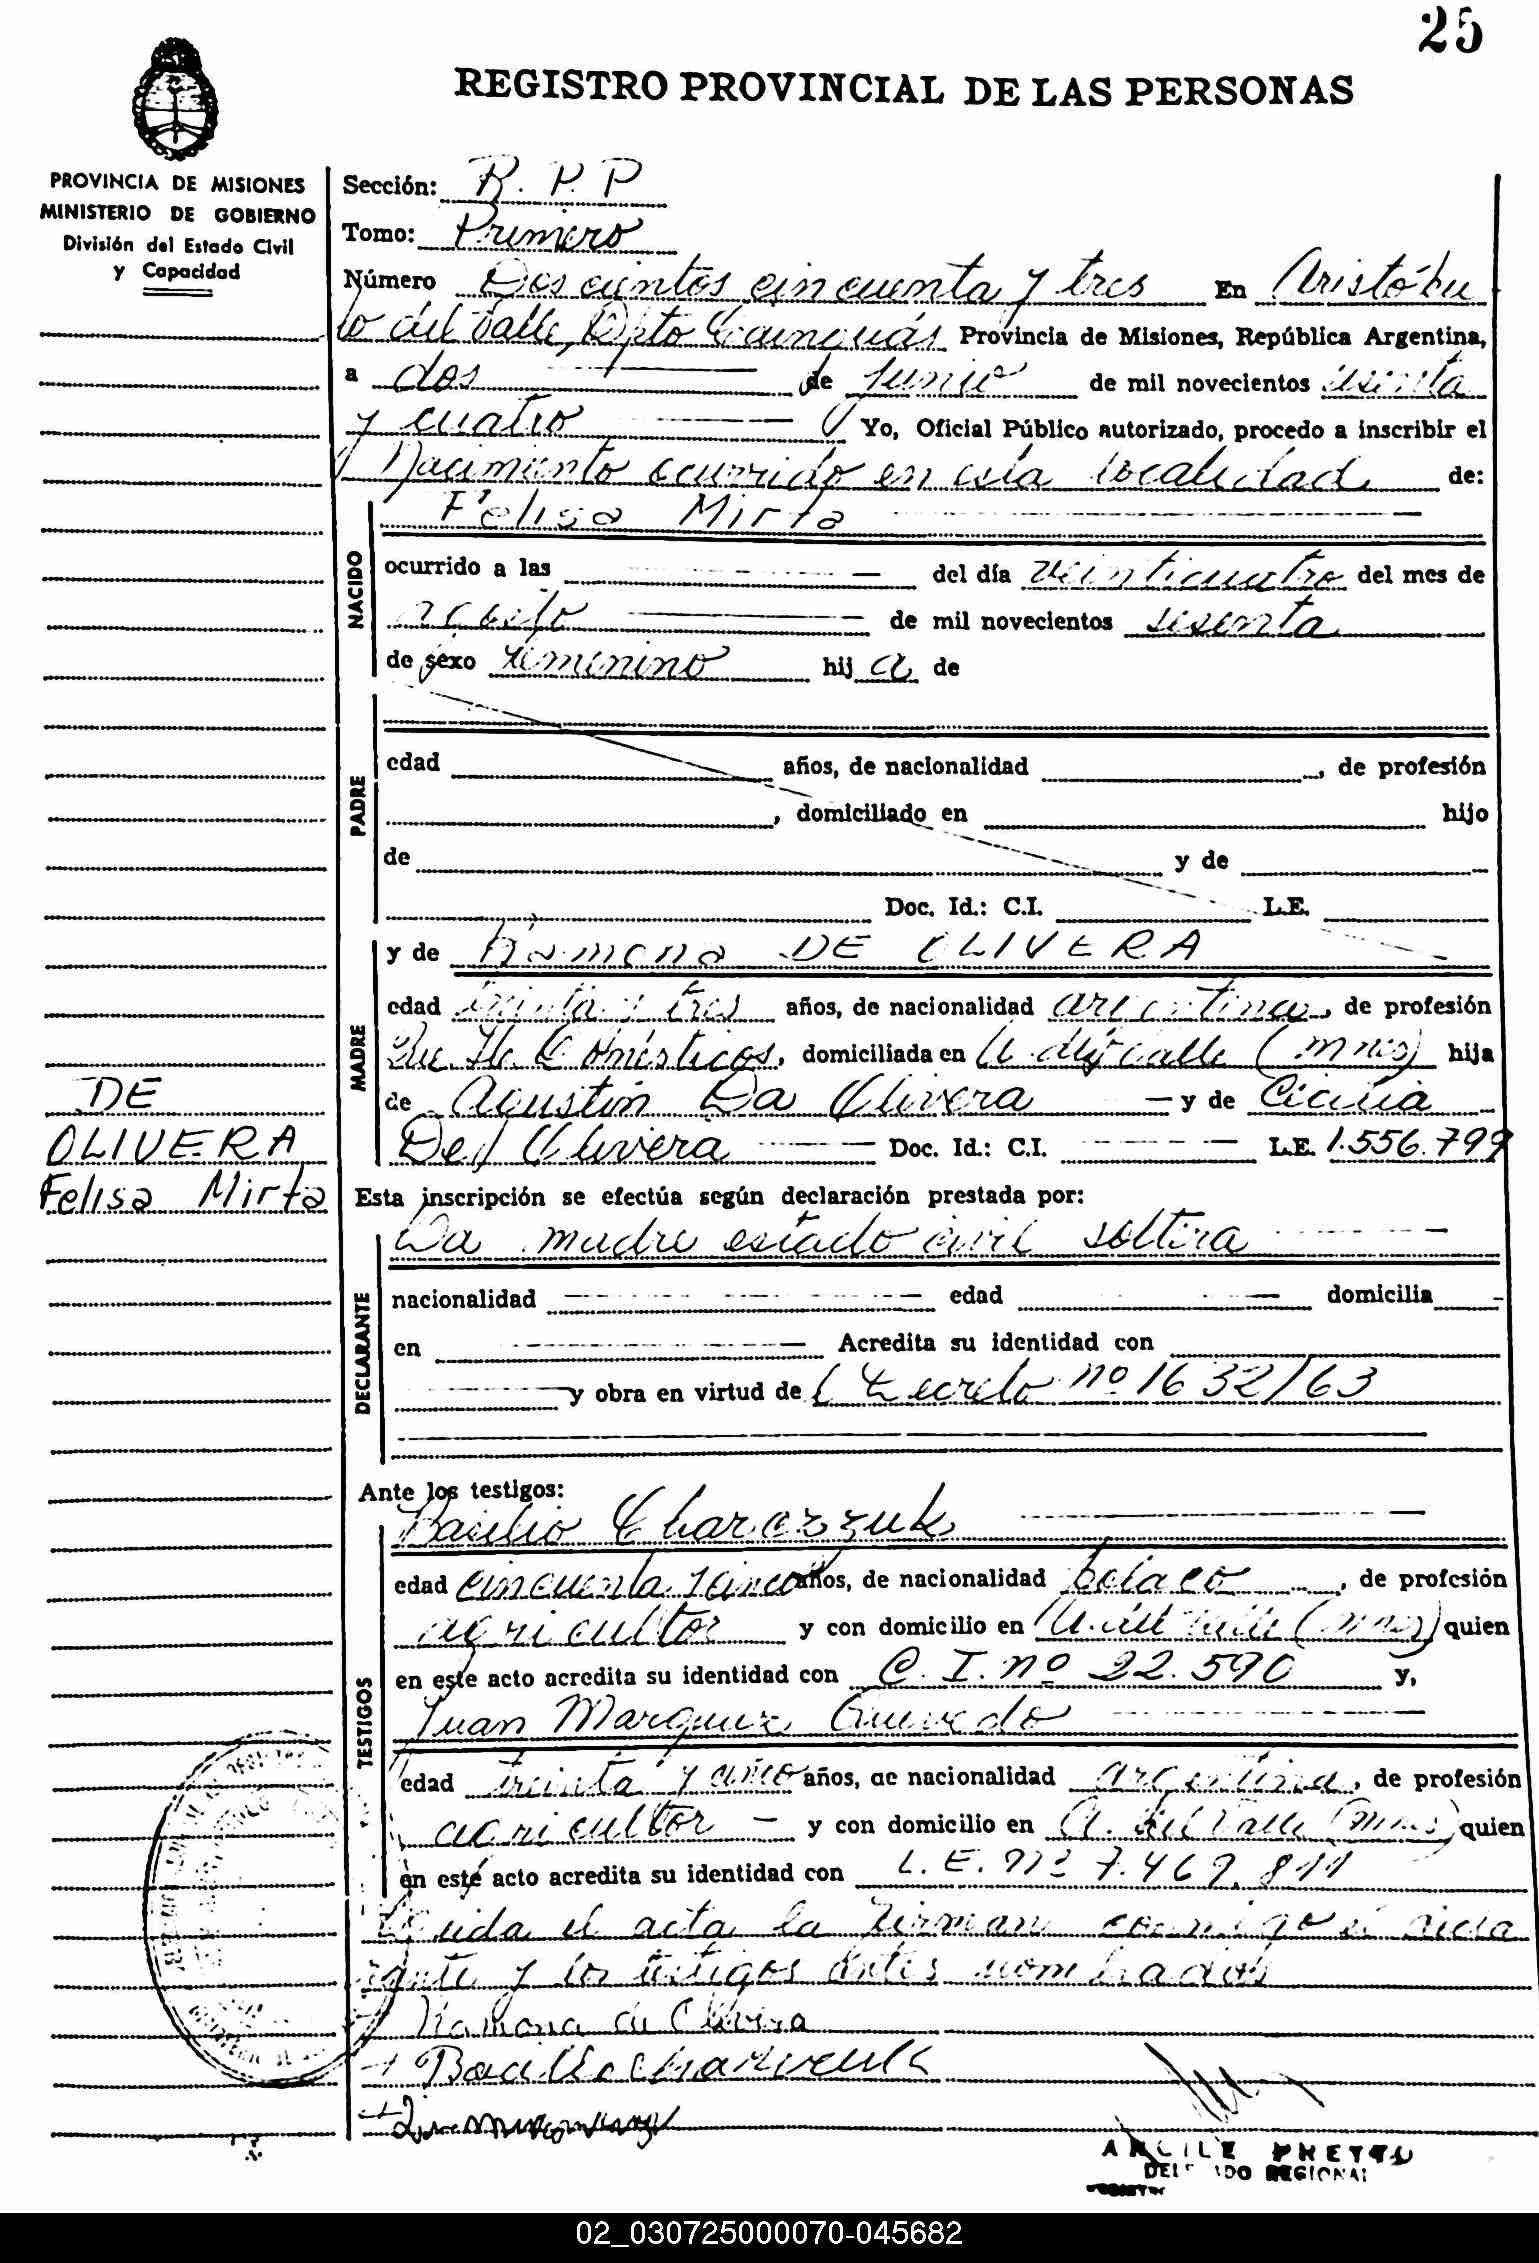 25
REGISTRO PROVINCIAL DE LAS PERSONAS
PROVINCIA DE MISIONES
MINISTERIO DE GOBIERNO
División del Estado Civil
y Capacidad
Sección: R. P. P
Tomo: Primero
Número Doscientos cincuenta y tres En Aristóbu
lo del Valle, Dpto Cainguás Provincia de Misiones, República Argentina,
a dos de Junio de mil novecientos sesenta
y cuatro Yo, Oficial Público autorizado, procedo a inscribir el
Nacimiento ocurrido en esta localidad de:
NACIDO
Felisa Mirta
ocurrido a las del día veinticuatro del mes de
agosto de mil novecientos sesenta
de sexo femenino hij a de
PADRE
edad años, de nacionalidad , de profesión
, domiciliado en hijo
de y de
Doc. Id.: C.I. L.E.
MADRE
y de Ramona DE OLIVERA
edad treinta y tres años, de nacionalidad argentina, de profesión
Que. Hc. Domésticos, domiciliada en A. del Valle (mnes) hija
de Agustín Da Olivera y de Cicilia
De Olivera Doc. Id.: C.I. L.E. 1.556.799
DE
OLIVERA
Felisa Mirta
Esta inscripción se efectúa según declaración prestada por:
DECLARANTE
La madre estado civil soltera
nacionalidad edad domicilia
en Acredita su identidad con
y obra en virtud de Decreto nº 1632/63
Ante los testigos:
TESTIGOS
Basilio Charczzuk
edad cincuenta y cinco años, de nacionalidad polaco, de profesión
agricultor y con domicilio en A. del Valle (mnes) quien
en este acto acredita su identidad con C. I. nº 22.590 y,
Juan Marquez Quevedo
edad treinta y cinco años, de nacionalidad argentina, de profesión
agricultor y con domicilio en A. del Valle (mnes) quien
en este acto acredita su identidad con L. E. nº 7.469.811
Leida el acta la firman conmigo el decla
rante y los testigos antes nombrados
Ramona de Olivera
Basilio
PRETTO
DELEGADO REGIONAL
02_030725000070-045682